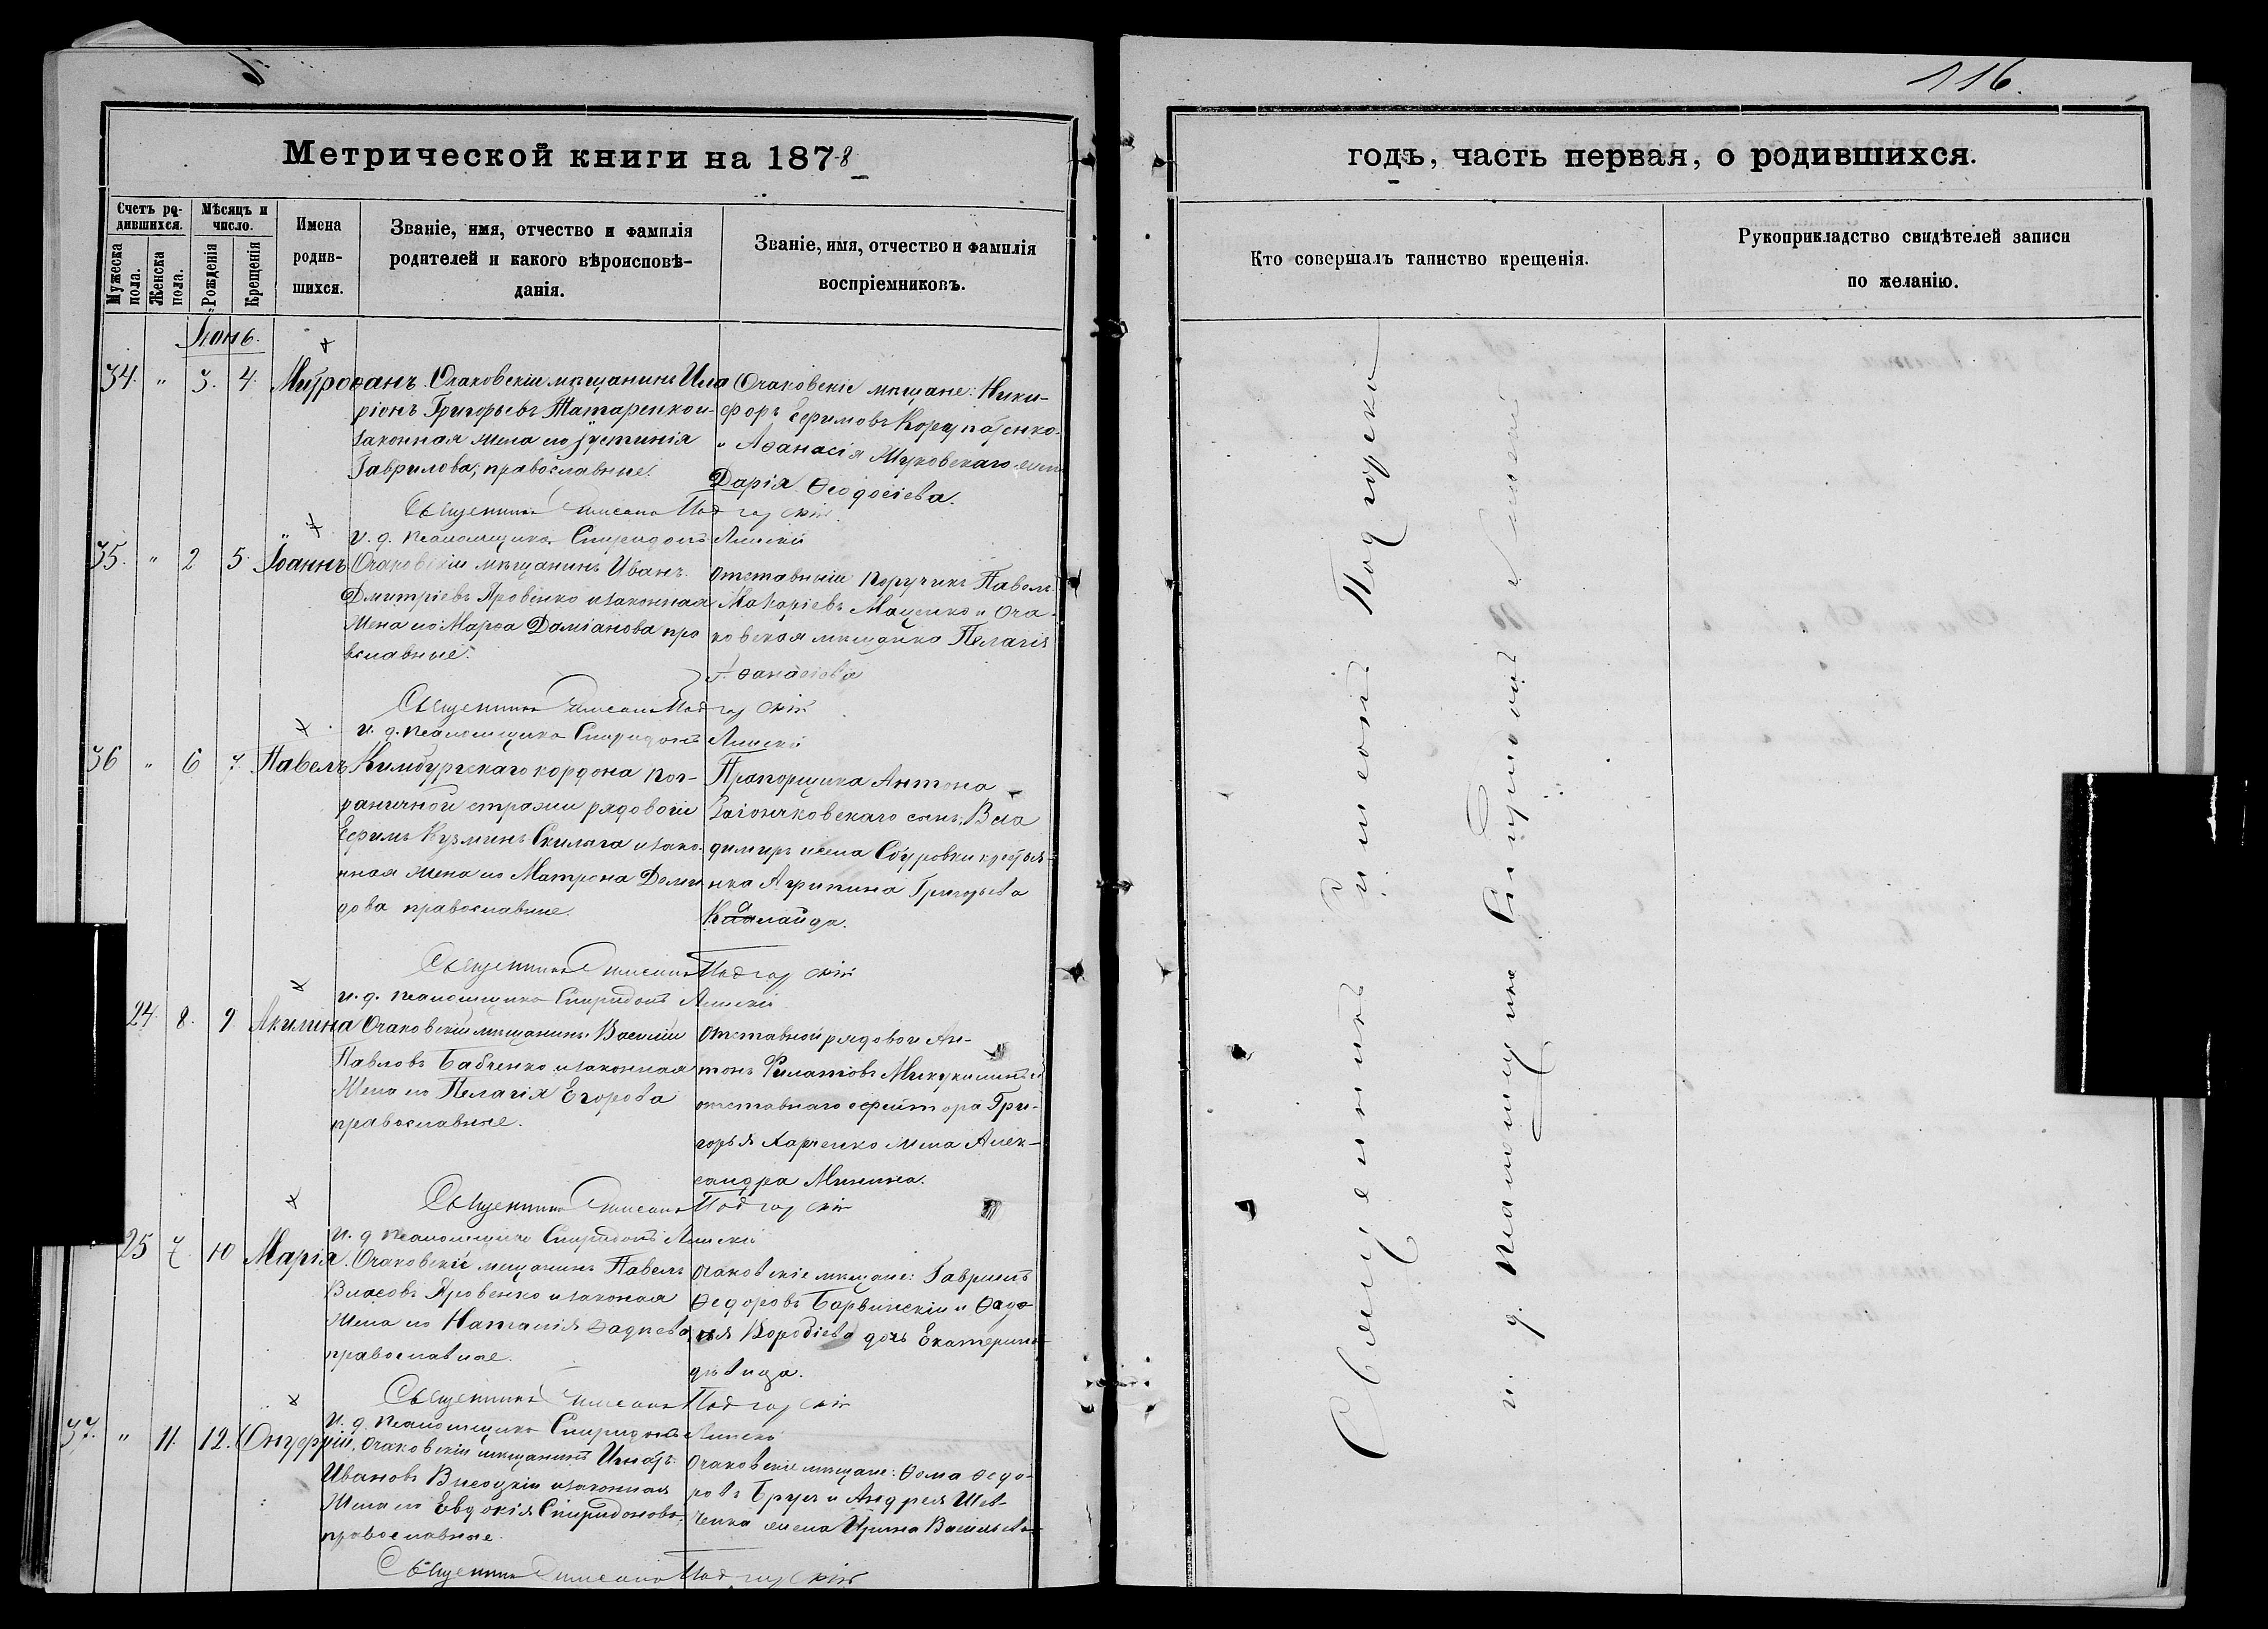 116.
Метрической книги на 1878
годъ, часть первая, о родившихся.
Счетъ ро-
дившихся.
Мужеска
пола.
Женска
пола.
Мѣсяцъ и
число.
Рожденія
Крещенія
Имена
родив-
шихся.
Званіе, имя, отчество и фамилія
родителей и какого вѣроисповѣ-
данія.
Званіе, имя, отчество и фамилія
воспріемниковъ.
Кто совершалъ таинство крещенія.
Рукоприкладство свидѣтелей записи
по желанію.
Іюнь.
34. " 3. 4. Митрофанъ.
Очаковскіи мѣщанинъ Ила
ріонъ Григорьевъ Татаренко и
законная жена его Іустинія
Гаврилова, православные.
Очаковскіе мѣщане: Ники-
форъ Ефимовъ
и Аѳанасія Жуковскаго жена
Дарія Ѳеодосіева.
Священникъ Подгорскій
и. д. псаломщика Спиридонъ
35. " 2 5. Іоаннъ
Очаковскіи мѣщанинъ Иванъ
Дмитріевъ Яровенко и законная
жена его Марѳа Даміанова пра
вславные.
Отставныи Поручикъ Павелъ
Макаріевъ Маценко и Оча-
ковская мѣщанка Пелагія
Аѳанасіова
Священникъ Подгорскій
и. д. псаломщика Спиридонъ
36 " 6 7. Павелъ
Кинбургскаго кордона пог-
раничной стражи рядовоги
Ефимъ Кузминъ Скиляга и зако-
нная жена его Матрона Деми
дова православные.
Прапорщика Антона
Загончковскаго сынъ, Вла
димиръ и села Збуровки крестья-
нка Агрипина Григорьева
Калайда.
Священникъ Подгорскій
и. д. псаломщика Спиридонъ
24. 8. 9. Акилина
Очаковскіи мѣщанинъ Василіи
Павловъ Бабченко и законная
жена его Пелагія Егорова
православные.
Отставной рядовои Ан-
тонъ Филатовъ и
отставнаго ефрейтора Гри-
горья Харченко жена Алек-
сандра Минина.
Священникъ Подгорскій
и. д. псаломщика Спиридонъ
25 7 10 Марія.
Очаковскіи мѣщанинъ Павелъ
Власовъ Яровенко и законая
жена его Наталія Фадѣева
православные.
Очаковскіе мѣщане: Гавріилъ
Ѳедоровъ Барвинскіи и Ѳадѣ-
дочь Екатерина
дѣвица.
Священникъ Подгорскій
и. д. псаломщика Спиридонъ
37. " 11. 12. Онуфріи,
Очаковскіи мѣщанинъ Игнатъ
Ивановъ Висоцкіи и законная
жена его Евдокія Спиридонова,
православные.
Очаковскіе мѣщане: Ѳома Ѳедо-
ровъ и Андрея Шев-
ченка жена Ирина Васильева
Священникъ Подгорскій
Священникъ Подгорскій
и. д. псаломщика Спиридонъ